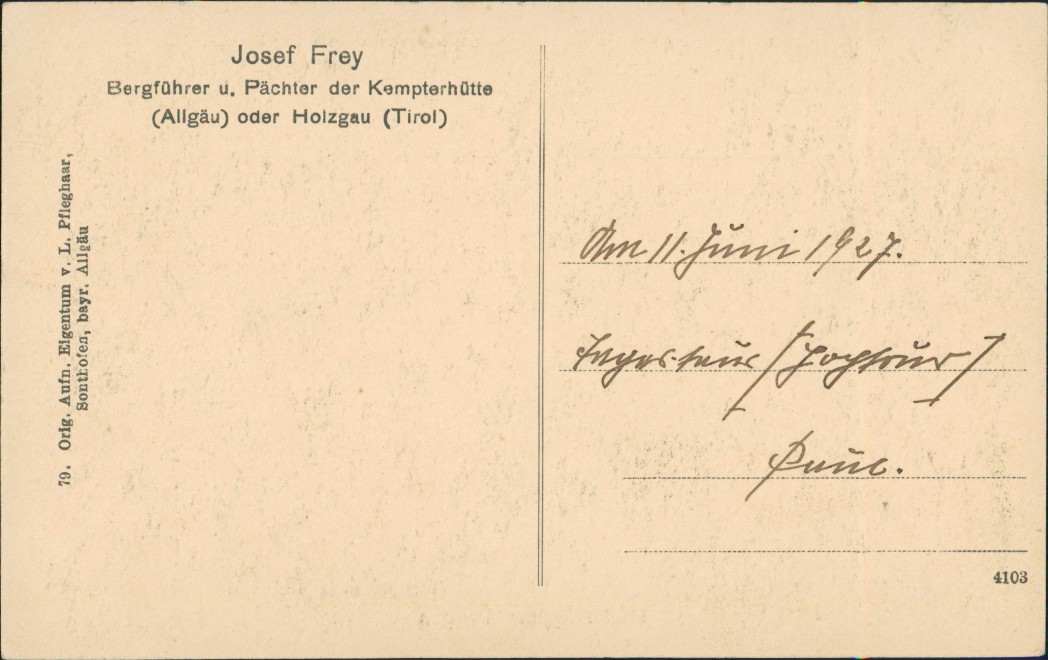 Josef Frey
Bergführer u. Pächter der Kempterhütte
(Allgäu) oder Holzgau (Tirol)
79. Orig. Aufn. Eigentum v. L. Pfleghaar,
Sonthofen, bayr. Allgäu
Am 11. Juni 1927.
Tagestour (Hochtour)
Paul.
4103